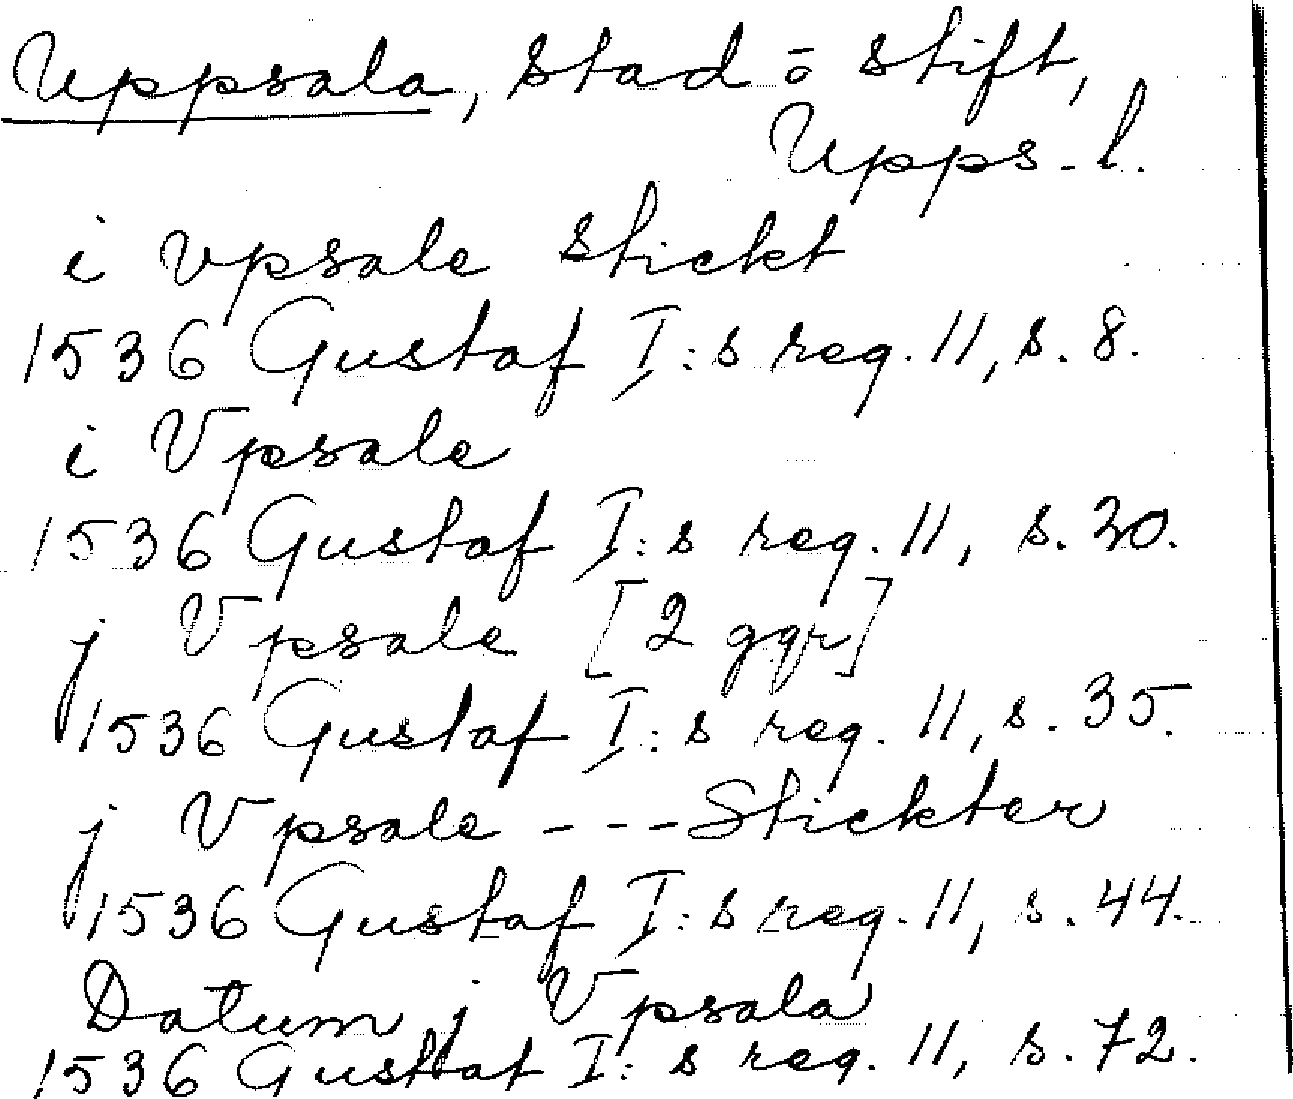 Uppsala, stad o stift,
Upps. l.
i vpsale stickt
1536 Gustaf I:s reg. 11, s. 8.
i Vpsale
1536 Gustaf I:s reg. 11, s. 30.
j Vpsale [2 ggr]
1536 Gustaf I:s reg. 11, s. 35.
j Vpsale - - - Stickter
1536 Gustaf I:s reg. 11, s. 44.
Datum j Vpsala
1536 Gustaf I:s reg. 11, s. 72.